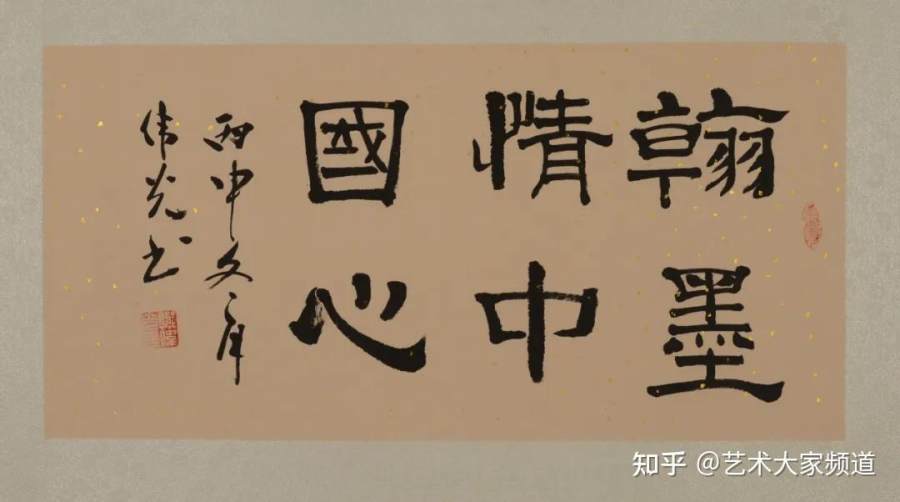 翰墨
情中
國心
丙申
伟光书
知乎 @艺术大家频道